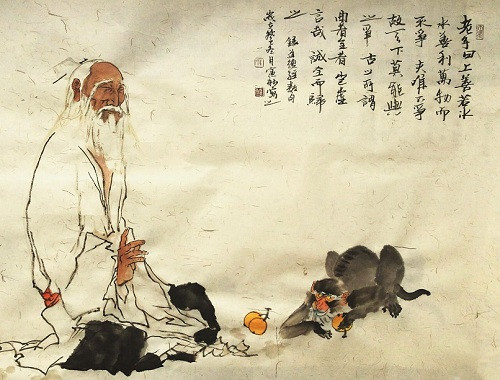 老子曰上善若水
水善利萬物而
不爭夫唯不爭
故天下莫能與
之爭古之所謂
曲者者豈虛
言哉誠全而歸
之 錄道德經數句
歲在冬月寫